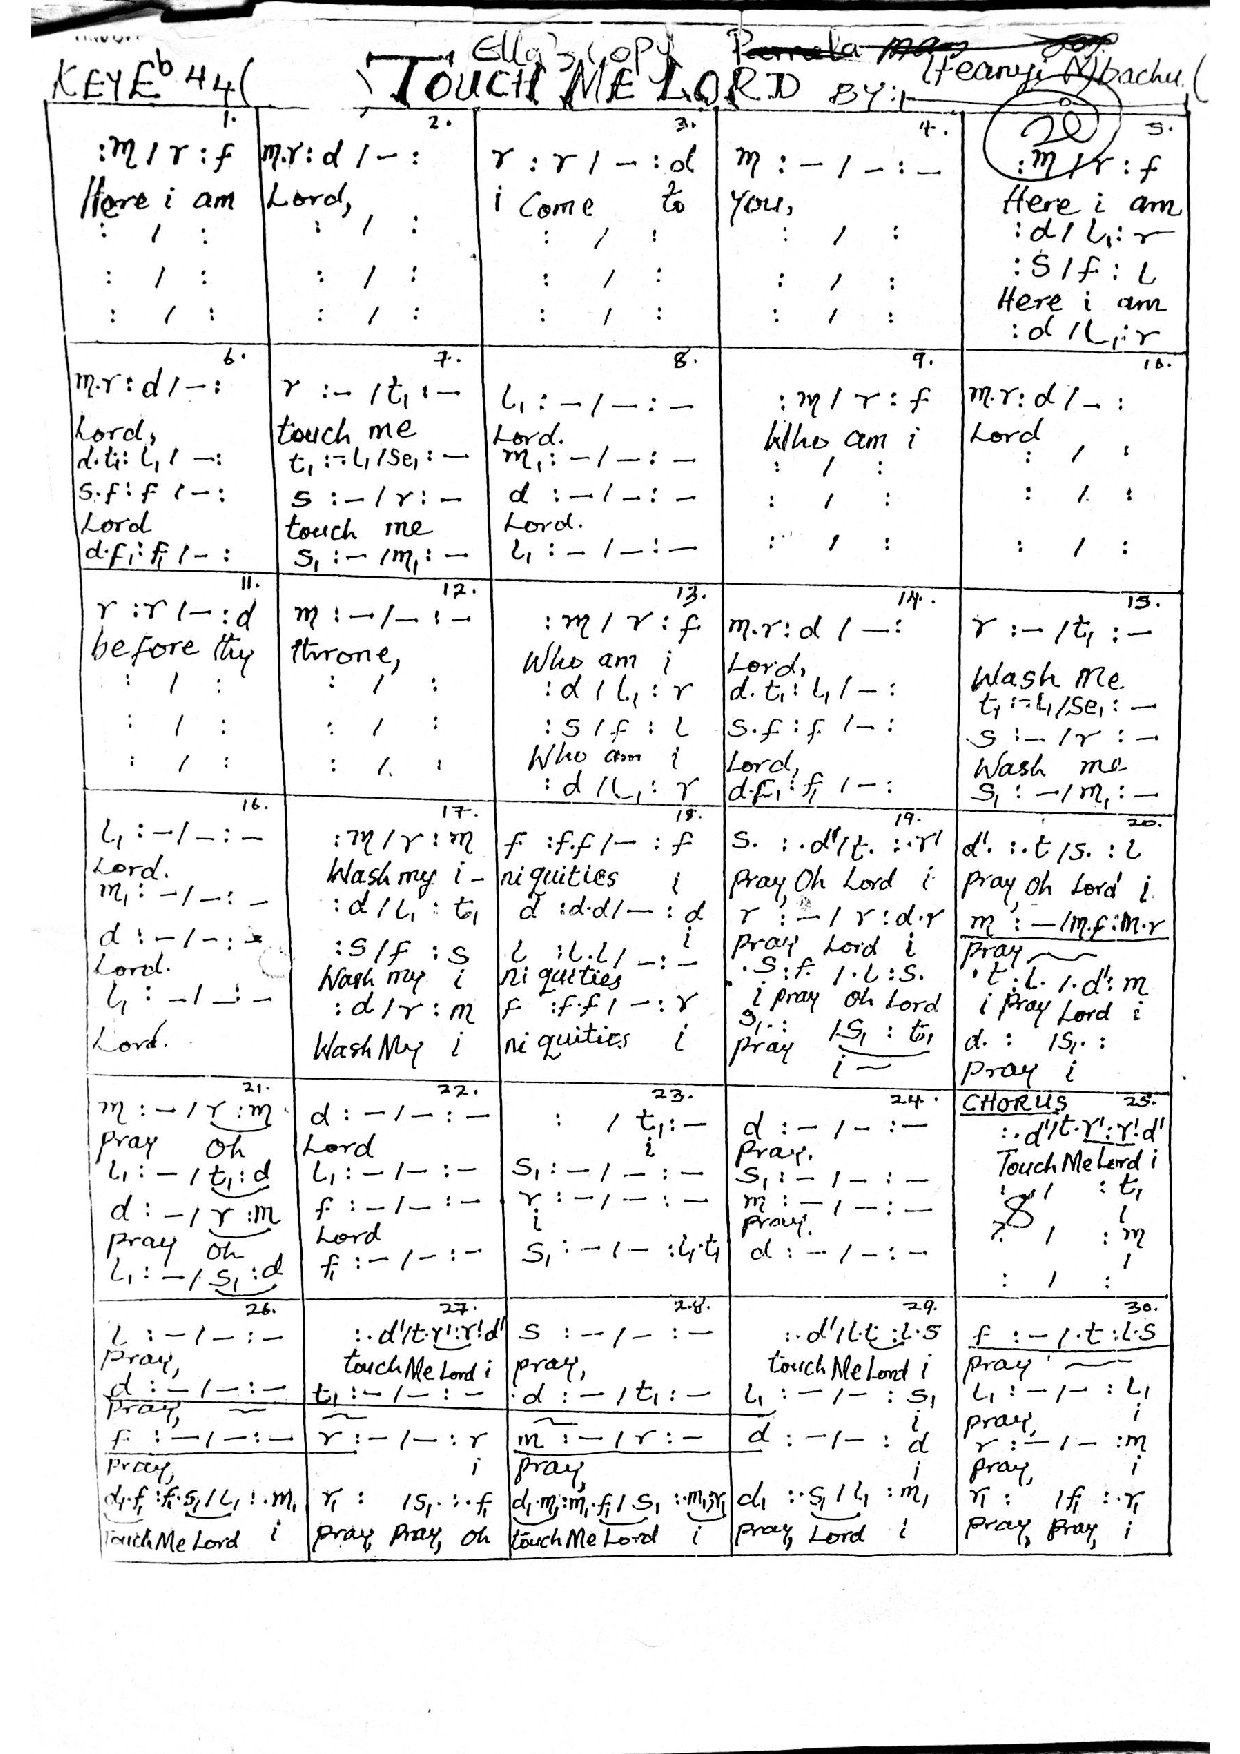 Ella's copy
KEY Eb 4/4 ( TOUCH ME LORD BY:- Ifeanyi Mbachu (
20
1.
:m / r : f
Here i am
: / :
: / :
: / :
2.
m.r : d / – :
Lord,
: / :
: / :
: / :
3.
r : r / – : d
i Come to
: / :
: / :
: / :
4.
m : – / – : –
You,
: / :
: / :
: / :
5.
:m / r : f
Here i am
:d / l₁ : r
:s / f : l
Here i am
:d / l₁ : r
6.
m.r : d / – :
Lord,
d.t₁ : l₁ / – :
s.f : f / – :
Lord
d.f₁ : f₁ / – :
7.
r : – / t₁ : –
touch me
t₁ : – l₁ / se₁ : –
s : – / r : –
touch me
s₁ : – / m₁ : –
8.
l₁ : – / – : –
Lord.
m₁ : – / – : –
d : – / – : –
Lord.
l₁ : – / – : –
9.
:m / r : f
Who am i
: / :
: / :
: / :
10.
m.r : d / – :
Lord
: / :
: / :
: / :
11.
r : r / – : d
before thy
: / :
: / :
: / :
12.
m : – / – : –
throne,
: / :
: / :
: / :
13.
:m / r : f
Who am i
:d / l₁ : r
:s / f : l
Who am i
:d / l₁ : r
14.
m.r : d / – :
Lord,
d.t₁ : l₁ / – :
s.f : f / – :
Lord,
d.f₁ : f₁ / – :
15.
r : – / t₁ : –
Wash me
t₁ : – l₁ / se₁ : –
s : – / r : –
Wash me
s₁ : – / m₁ : –
16.
l₁ : – / – : –
Lord.
m₁ : – / – : –
d : – / – : –
Lord.
l₁ : – / – : –
Lord.
17.
:m / r : m
Wash my i –
:d / l₁ : t₁
:s / f : s
Wash my i
:d / r : m
Wash My i
18.
f : f.f / – : f
niquities i
d : d.d / – : d
i
l : l.l / – : –
niquities
f : f.f / – : r
niquities i
19.
s. : .d' / t. : .r'
pray, Oh Lord i
r : – / r : d.r
pray Lord i
.s : f. / .l : s.
i pray oh Lord
s₁. : / s₁ : t₁
pray i
20.
d'. : .t / s. : l
pray, oh Lord i
m : – / m.f : m.r
pray
.t : l. / .d' : m
i pray Lord i
d. : / s₁. :
pray i
21.
m : – / r : m
pray oh
l₁ : – / t₁ : d
d : – / r : m
pray oh
l₁ : – / s₁ : d
22.
d : – / – : –
Lord
l₁ : – / – : –
f : – / – : –
Lord
f₁ : – / – : –
23.
: / t₁ : –
i
s₁ : – / – : –
r : – / – : –
i
s₁ : – / – : l₁.t₁
24.
d : – / – : –
pray.
s₁ : – / – : –
m : – / – : –
pray.
d : – / – : –
CHORUS 25.
: .d' / t.r' : r'.d'
Touch Me Lord i
: / : t₁
i
: / : m
i
: / :
26.
l : – / – : –
pray,
d : – / – : –
pray,
f : – / – : –
pray,
d₁.f₁ : f₁.s₁ / l₁ : .m₁
touch Me Lord i
27.
: .d' / t.r' : r'.d'
touch Me Lord i
t₁ : – / – : –
r : – / – : r
i
r₁ : / s₁. : .f₁
pray, pray, oh
28.
s : – / – : –
pray,
d : – / t₁ : –
m : – / r : –
pray,
d₁.m₁ : m₁.f₁ / s₁ : .m₁,r₁
touch Me Lord i
29.
: .d' / l.t : l.s
touch Me Lord i
l₁ : – / – : s₁
i
d : – / – : d
i
d₁ : .s₁ / l₁ : m₁
pray, Lord i
30.
f : – / .t : l.s
pray
l₁ : – / – : l₁
pray, i
r : – / – : m
pray, i
r₁ : / f₁ : .r₁
pray, pray, i